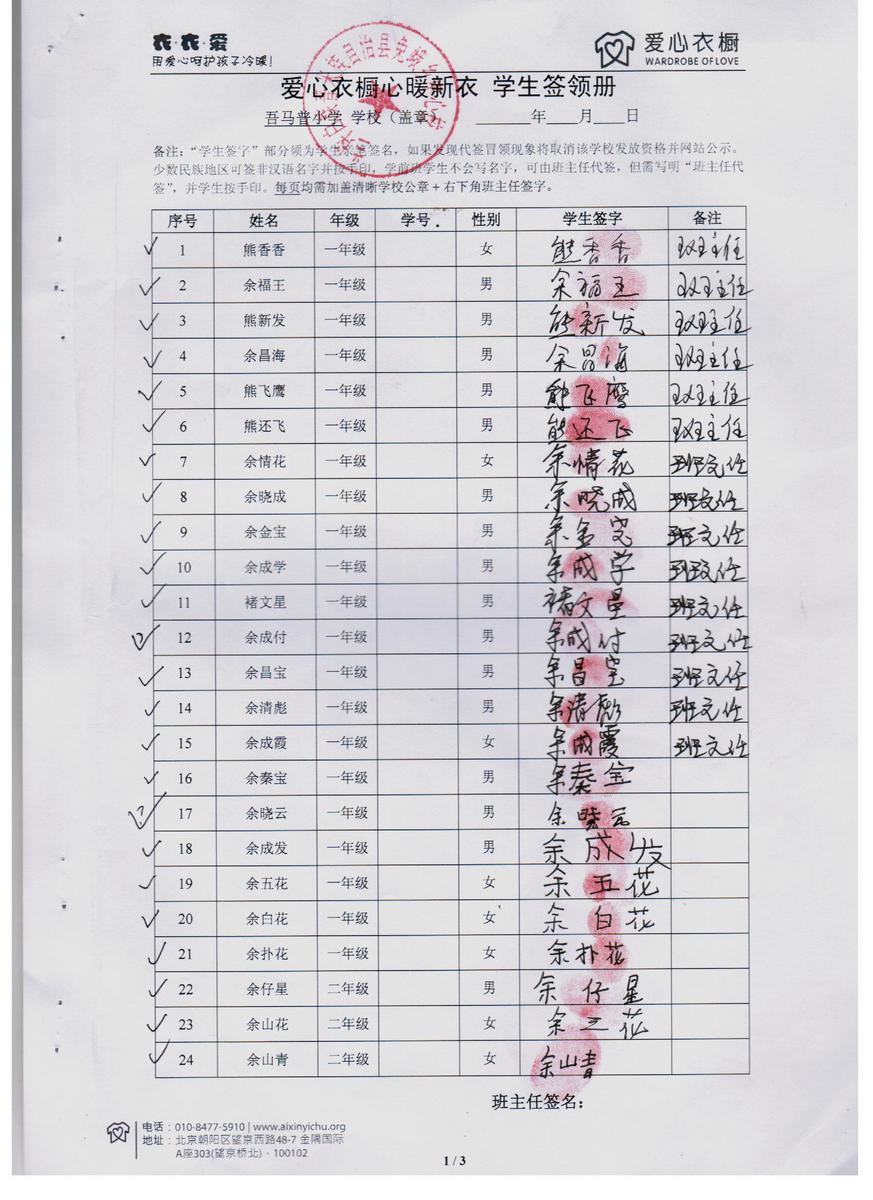 衣·衣·爱
用爱心呵护孩子冷暖!
爱心衣橱
WARDROBE OF LOVE
爱心衣橱心暖新衣 学生签领册
吾马普小学 学校（盖章） 年 月 日
备注：“学生签字”部分须为学生亲笔签名，如果发现代签冒领现象将取消该学校发放资格并网站公示。
少数民族地区可签非汉语名字并按手印，学前班学生不会写名字，可由班主任代签，但需写明“班主任代
签”，并学生按手印。每页均需加盖清晰学校公章+右下角班主任签字。
序号 姓名 年级 学号 性别 学生签字 备注
1 熊香香 一年级 女 熊香香 班主任
2 余福王 一年级 男 余福王 班主任
3 熊新发 一年级 男 熊新发 班主任
4 余昌海 一年级 男 余昌海 班主任
5 熊飞鹰 一年级 男 熊飞鹰 班主任
6 熊还飞 一年级 男 熊还飞 班主任
7 余情花 一年级 女 余情花 班主任
8 余晓成 一年级 男 余晓成 班主任
9 余金宝 一年级 男 余金宝 班主任
10 余成学 一年级 男 余成学 班主任
11 褚文星 一年级 男 褚文星 班主任
12 余成付 一年级 男 余成付 班主任
13 余昌宝 一年级 男 余昌宝 班主任
14 余清彪 一年级 男 余清彪 班主任
15 余成霞 一年级 女 余成霞 班主任
16 余秦宝 一年级 男 余秦宝
17 余晓云 一年级 男 余晓云
18 余成发 一年级 男 余成发
19 余五花 一年级 女 余五花
20 余白花 一年级 女 余白花
21 余扑花 一年级 女 余扑花
22 余仔星 二年级 男 余仔星
23 余山花 二年级 女 余三花
24 余山青 二年级 女 余山青
班主任签名：
电话：010-8477-5910 | www.aixinyichu.org
地址：北京朝阳区望京西路48-7 金隅国际
A座303(望京桥北)·100102
1 / 3